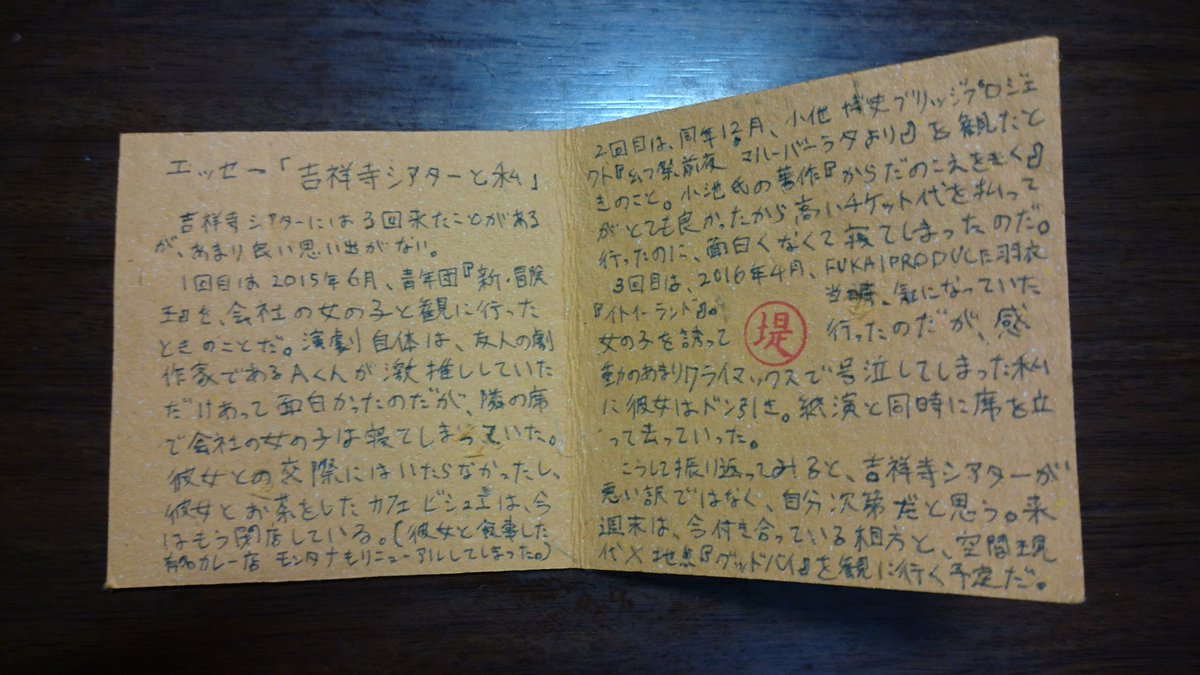 エッセー「吉祥寺シアターと私」
吉祥寺シアターには3回来たことがある
が、あまり良い思い出がない。
1回目は2015年6月、青年団『新・冒険
王』を、会社の女の子と観に行った
ときのことだ。演劇自体は、友人の劇
作家であるAくんが激推ししていた
だけあって面白かったのだが、隣の席
で会社の女の子は寝てしまっていた。
彼女との交際にはいたらなかったし、
彼女とお茶をしたカフェ ビシュエは、今
はもう閉店している。(彼女と食事した
有名カレー店 モンタナもリニューアルしてしまった。)
2回目は、同年12月、小池博史ブリッジプロジェ
クト『幻祭前夜 マハーバーラタより』を観たと
きのこと。小池氏の著作『からだのこえをきく』
がとても良かったから高いチケット代を払って
行ったのに、面白くなくて寝てしまったのだ。
3回目は、2016年4月、FUKAIPRODUCE羽衣
『イトイーランド』。当時、気になっていた
女の子を誘って 堤 行ったのだが、感
動のあまりクライマックスで号泣してしまった私
に彼女はドン引き。終演と同時に席を立
って去っていった。
こうして振り返ってみると、吉祥寺シアターが
悪い訳ではなく、自分次第だと思う。来
週末は、今付き合っている相方と、空間現
代×地点『グッドバイ』を観に行く予定だ。